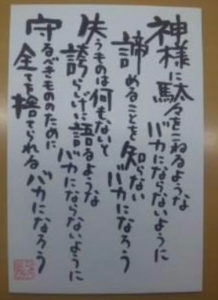 神様に駄々をこねるような
バカにならないように
諦めることを知らない
バカになろう
失うものは何もないと
誇らしげに語るような
バカにならないように
守るべきもののために
全てを捨てられるバカになろう